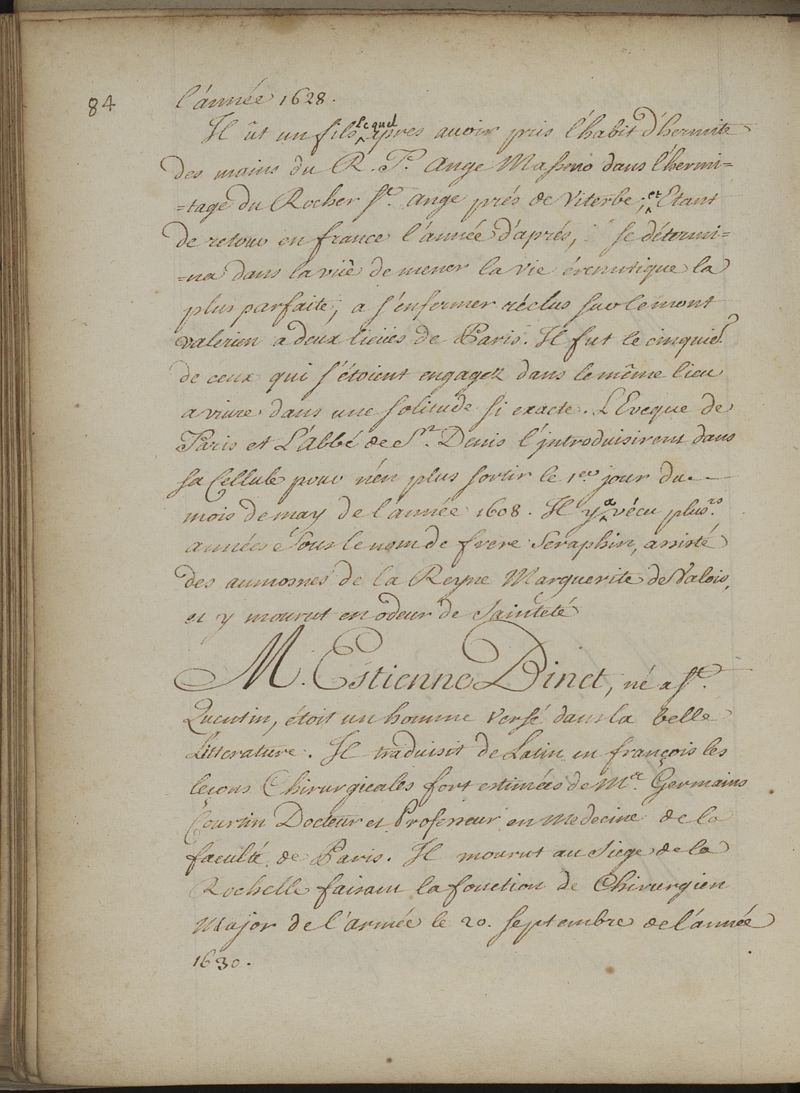 84
l'année 1628.
Il ût un fils lequel apres avoir pris l'habit d'hermite
des mains du R. P. Ange Masseno dans l'hermi=
=tage du Rocher St. Ange prés de Viterbe; et Etant
de retour en france l'année d'aprés, se détermi=
=na dans la vüe de mener la vie éremitique la
plus parfaite, a s'enfermer réclus sur le mont
valerien a deux lieües de Paris. Il fut le cinquie.
de ceux qui s'étoient engagez dans le même lieu
a vivre dans une solitude si exacte. L'Eveque de
Paris et L'Abbé de St. Denis l'introduisirent dans
sa Cellule pour n'en plus sortir le 1er jour du
mois de may de l'année 1608. Il y a vécu plusrs.
années sous le nom de frere Seraphin, assisté
des aumosnes de la Reyne Marguerite de Valois,
et y mourut en odeur de Sainteté
M. Estienne Dinet, né a St.
Quentin, étoit un homme versé dans la belle
Litterature. Il traduisit de Latin en françois les
leçons Chirurgicales fort estimées de Me. Germains
Courtin Docteur et Professeur en Medecine de la
faculté de Paris. Il mourut au Siege de la
Rochelle faisant la fonction de Chirurgien
Major de l'armée le 20. septembre de l'année
1630.